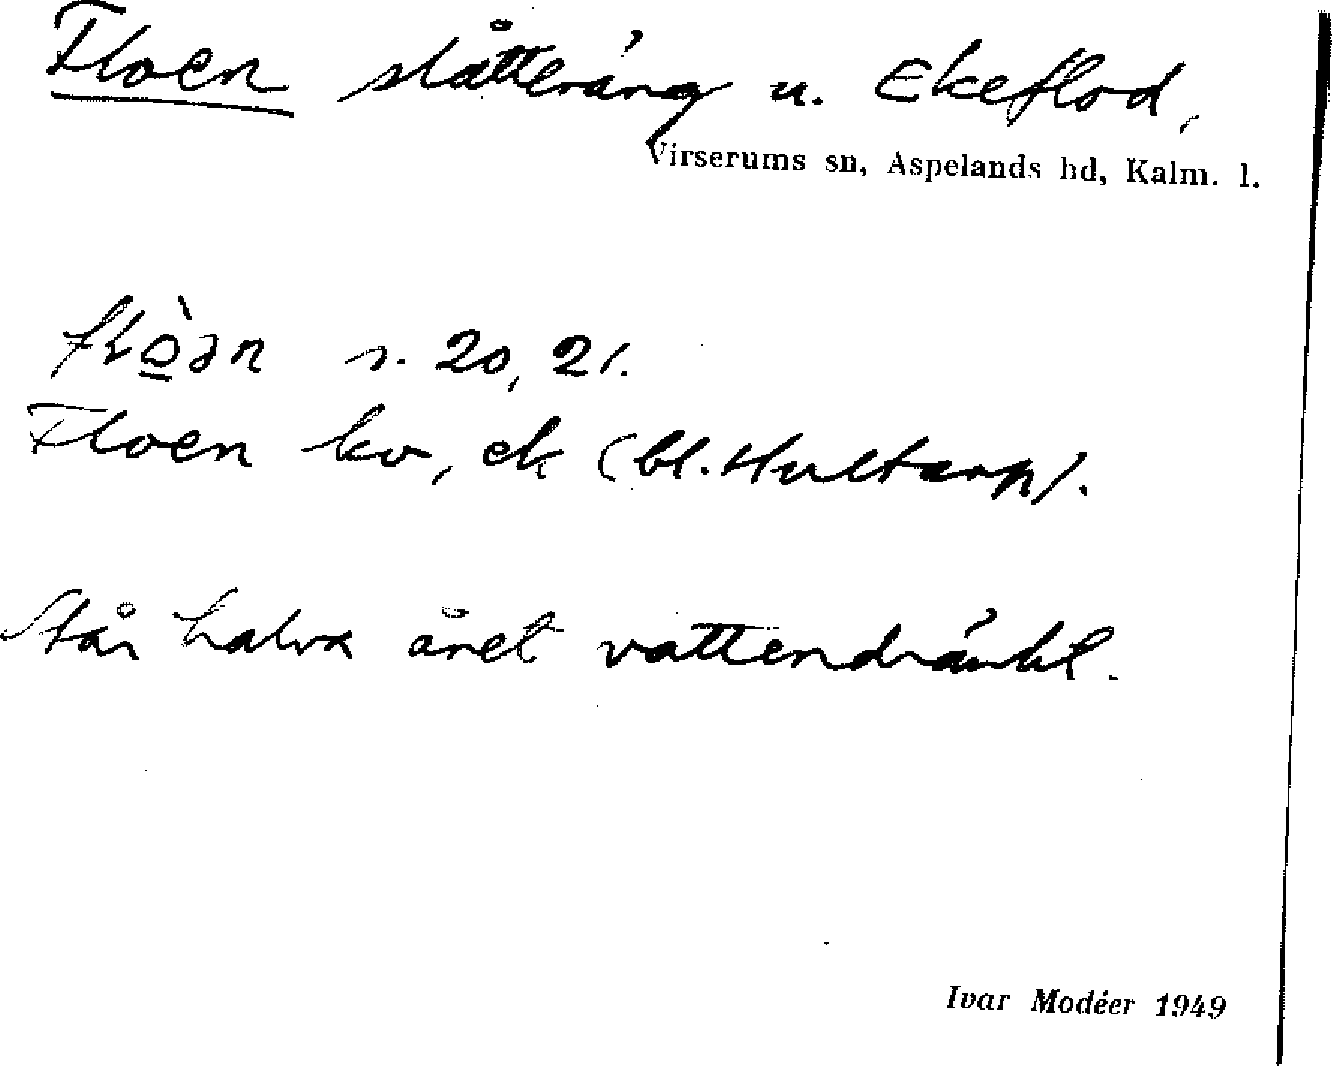 Floen slåtteräng u. Ekeflod,
Virserums sn, Aspelands hd, Kalm. l.
flò̱ən s. 20, 21.
Floen kv, ek (bl. Hultarp).
Står halva året vattendränkt.
Ivar Modéer 1949